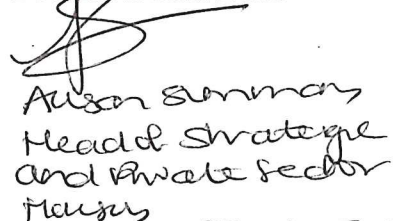 Alison Simmons,
Head of Strategic
and Private Sector
Housing